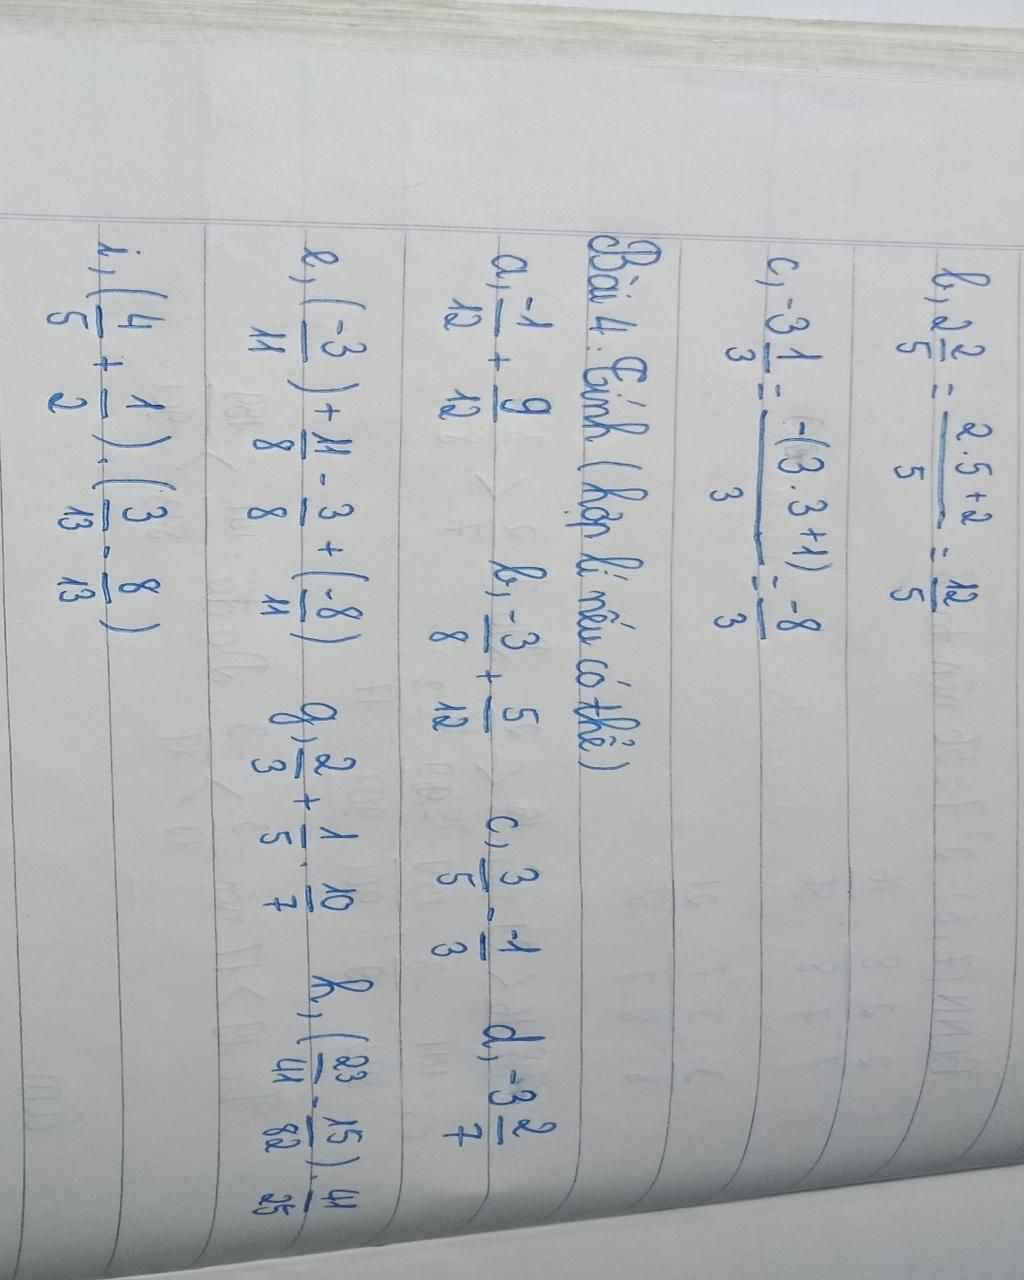 b, 2 2/5 = (2.5+2)/5 = 12/5
c, -3 1/3 = -(3.3+1)/3 = -8/3
Bài 4: Tính (hợp lí nếu có thể)
a, -1/12 + 9/12 b, -3/8 + 5/12 c, 3/5 - -1/3 d, -3 2/7
e, (-3/11) + 11/8 - 3/8 + (-8/11) g, 2/3 + 1/5 . 10/7 h, (23/41 - 15/82) . 41/25
i, (4/5 + 1/2) . (3/13 - 8/13)